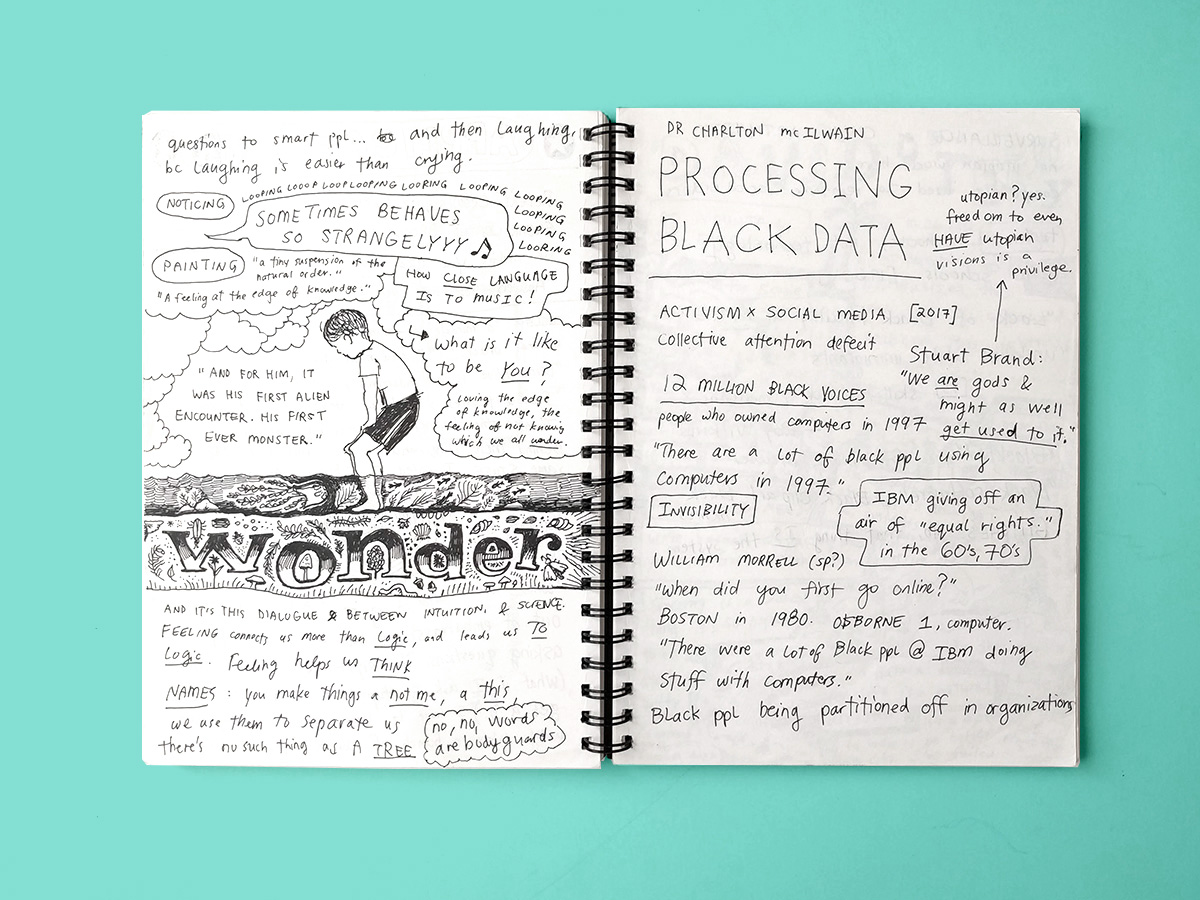 questions to smart ppl... and then laughing,
bc laughing is easier than crying.
LOOPING LOOOP LOUPLOOPING LOORING LOOPING LOOPING
LOOPING
LOOPING
LOOPING
LOORING
NOTICING
SOMETIMES BEHAVES
SO STRANGELYYY
PAINTING
"a tiny suspension of the
natural order."
"A feeling at the edge of knowledge."
HOW CLOSE LANGUAGE
IS TO MUSIC!
what is it like
to be You?
Loving the edge
of knowledge, the
feeling of not knowing
which we all wonder.
"AND FOR HIM, IT
WAS HIS FIRST ALIEN
ENCOUNTER. HIS FIRST
EVER MONSTER."
wonder
AND IT'S THIS DIALOGUE & BETWEEN INTUITION, & SCIENCE.
FEELING connects us more than Logic, and leads us TO
Logic. Feeling helps us THINK
NAMES: you make things a not me, a this,
we use them to separate us
there's no such thing as A TREE
no, no, words
are bodyguards
DR CHARLTON mcILWAIN
PROCESSING
BLACK DATA
utopian? yes.
freedom to even
HAVE utopian
visions is a
privilege.
ACTIVISM x SOCIAL MEDIA [2017]
Collective attention defecit
Stuart Brand:
"We are gods &
might as well
get used to it."
12 MILLION BLACK VOICES
people who owned computers in 1997
"There are a lot of black ppl using
Computers in 1997."
INVISIBILITY
IBM giving off an
air of "equal rights."
in the 60's, 70's
WILLIAM MORRELL (sp?)
"When did you first go online?"
BOSTON in 1980. OSBORNE 1, computer.
"There were a lot of Black ppl @ IBM doing
stuff with computers."
Black ppl being partitioned off in organizations